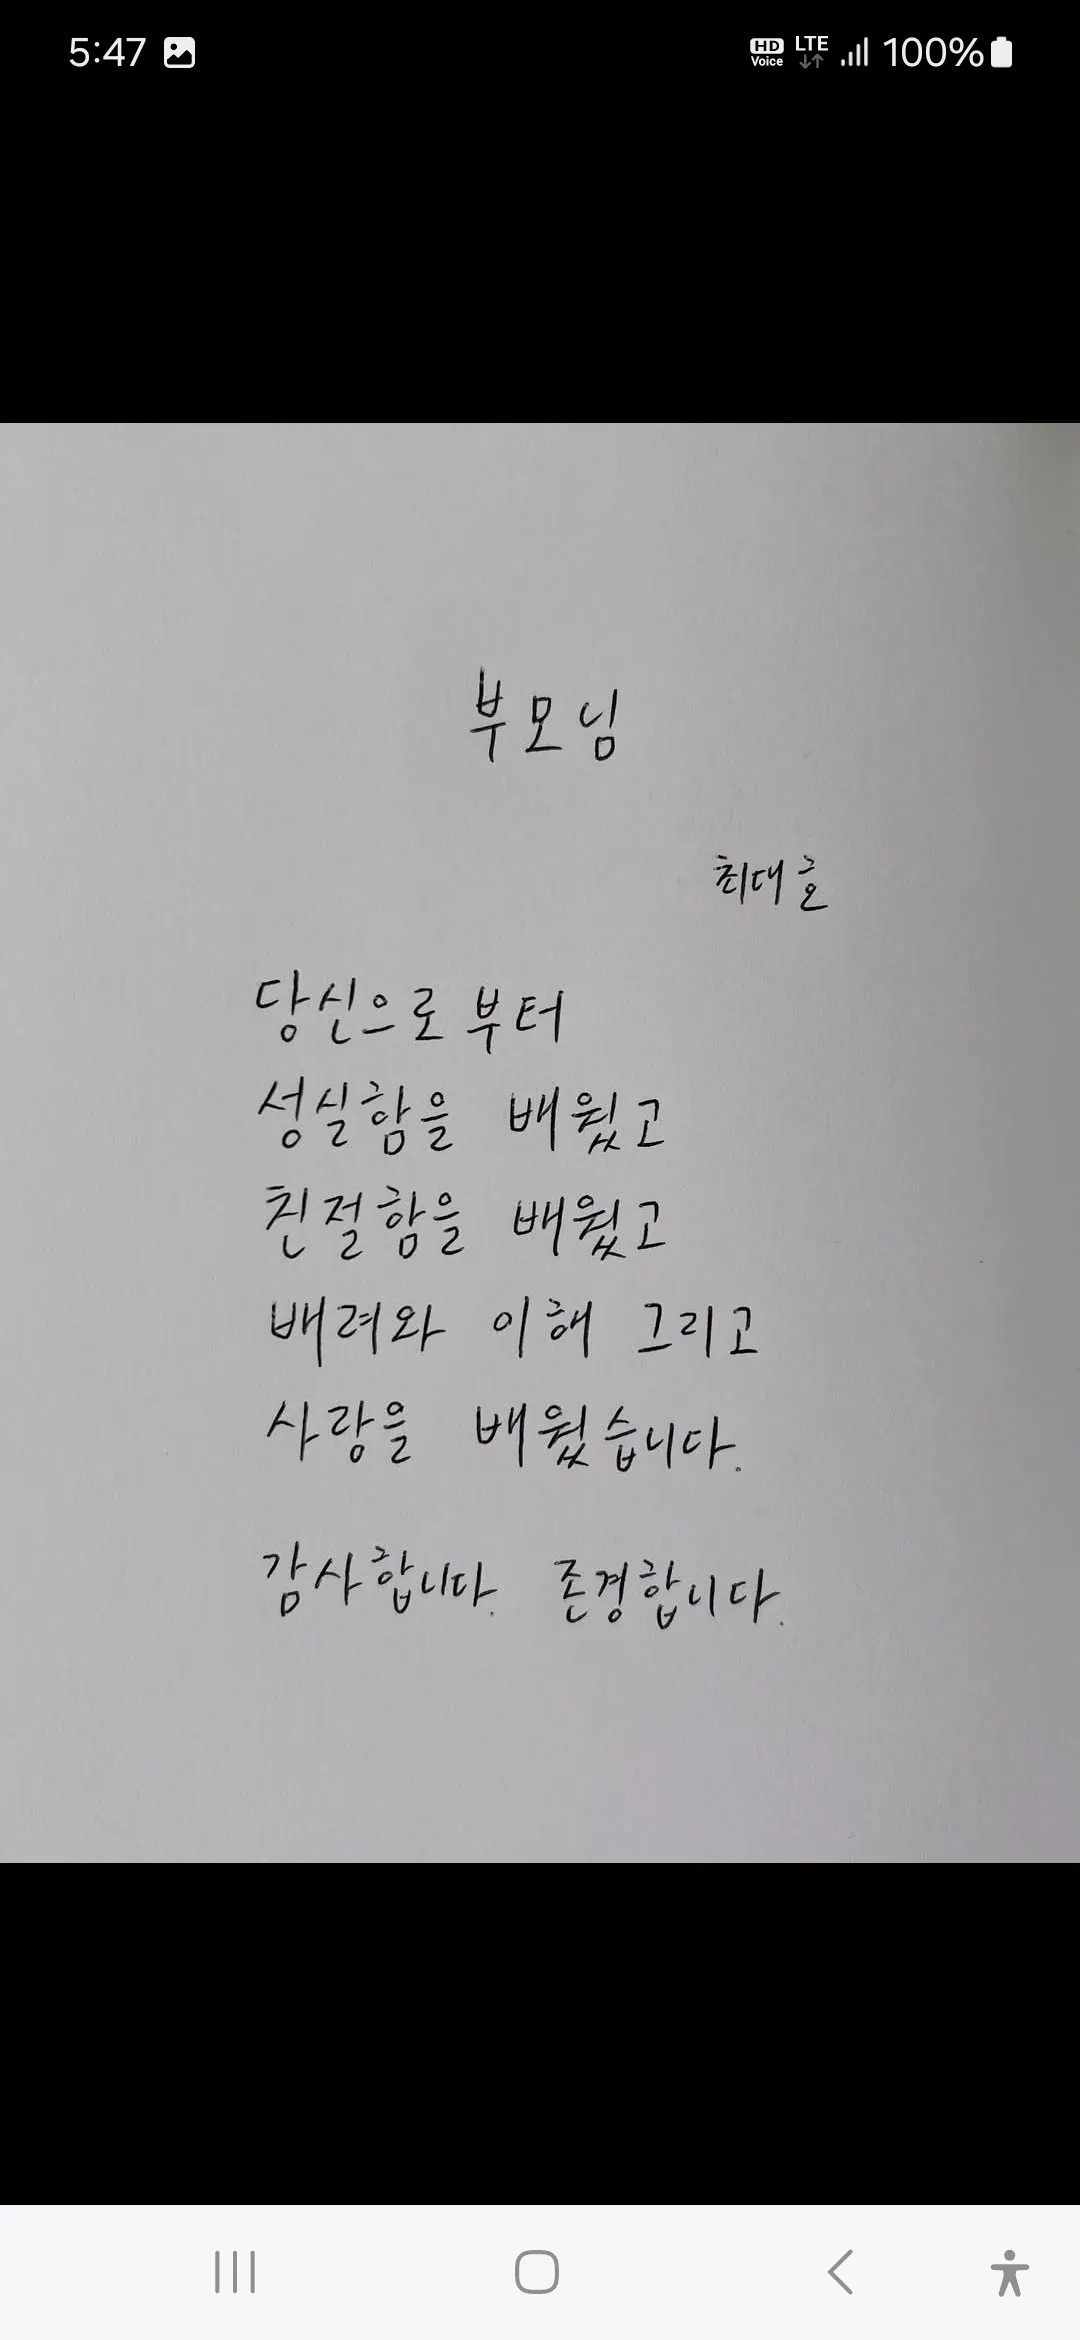 5:47 HD Voice LTE 100%
부모님
최대호
당신으로부터
성실함을 배웠고
친절함을 배웠고
배려와 이해 그리고
사랑을 배웠습니다.
감사합니다. 존경합니다.